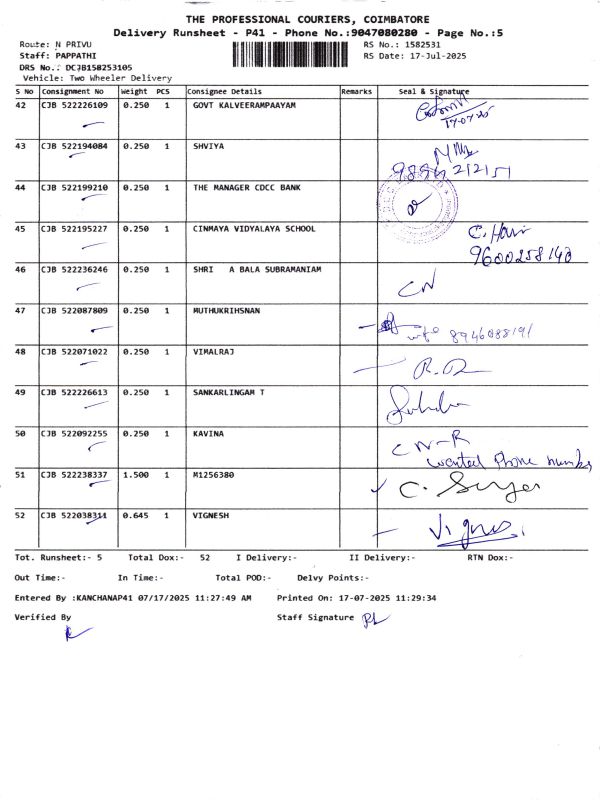 THE PROFESSIONAL COURIERS, COIMBATORE
Delivery Runsheet - P41 - Phone No.:9047080280 - Page No.:5
Route: N PRIVU RS No.: 1582531
Staff: PAPPATHI RS Date: 17-Jul-2025
DRS No.: DCJB158253105
Vehicle: Two Wheeler Delivery
S No Consignment No Weight PCS Consignee Details Remarks Seal & Signature
42 CJB 522226109 0.250 1 GOVT KALVEERAMPAAYAM
17-07-25
43 CJB 522194084 0.250 1 SHVIYA
44 CJB 522199210 0.250 1 THE MANAGER CDCC BANK
45 CJB 522195227 0.250 1 CINMAYA VIDYALAYA SCHOOL C. Hari
9600258140
46 CJB 522236246 0.250 1 SHRI A BALA SUBRAMANIAM CN
47 CJB 522087809 0.250 1 MUTHUKRIHSNAN
wife 8946088191
48 CJB 522071022 0.250 1 VIMALRAJ
49 CJB 522226613 0.250 1 SANKARLINGAM T
50 CJB 522092255 0.250 1 KAVINA CN-R
wanted Phone number
51 CJB 522238337 1.500 1 M1256380
52 CJB 522038311 0.645 1 VIGNESH
Tot. Runsheet:- 5 Total Dox:- 52 I Delivery:- II Delivery:- RTN Dox:-
Out Time:- In Time:- Total POD:- Delvy Points:-
Entered By :KANCHANAP41 07/17/2025 11:27:49 AM Printed On: 17-07-2025 11:29:34
Verified By Staff Signature